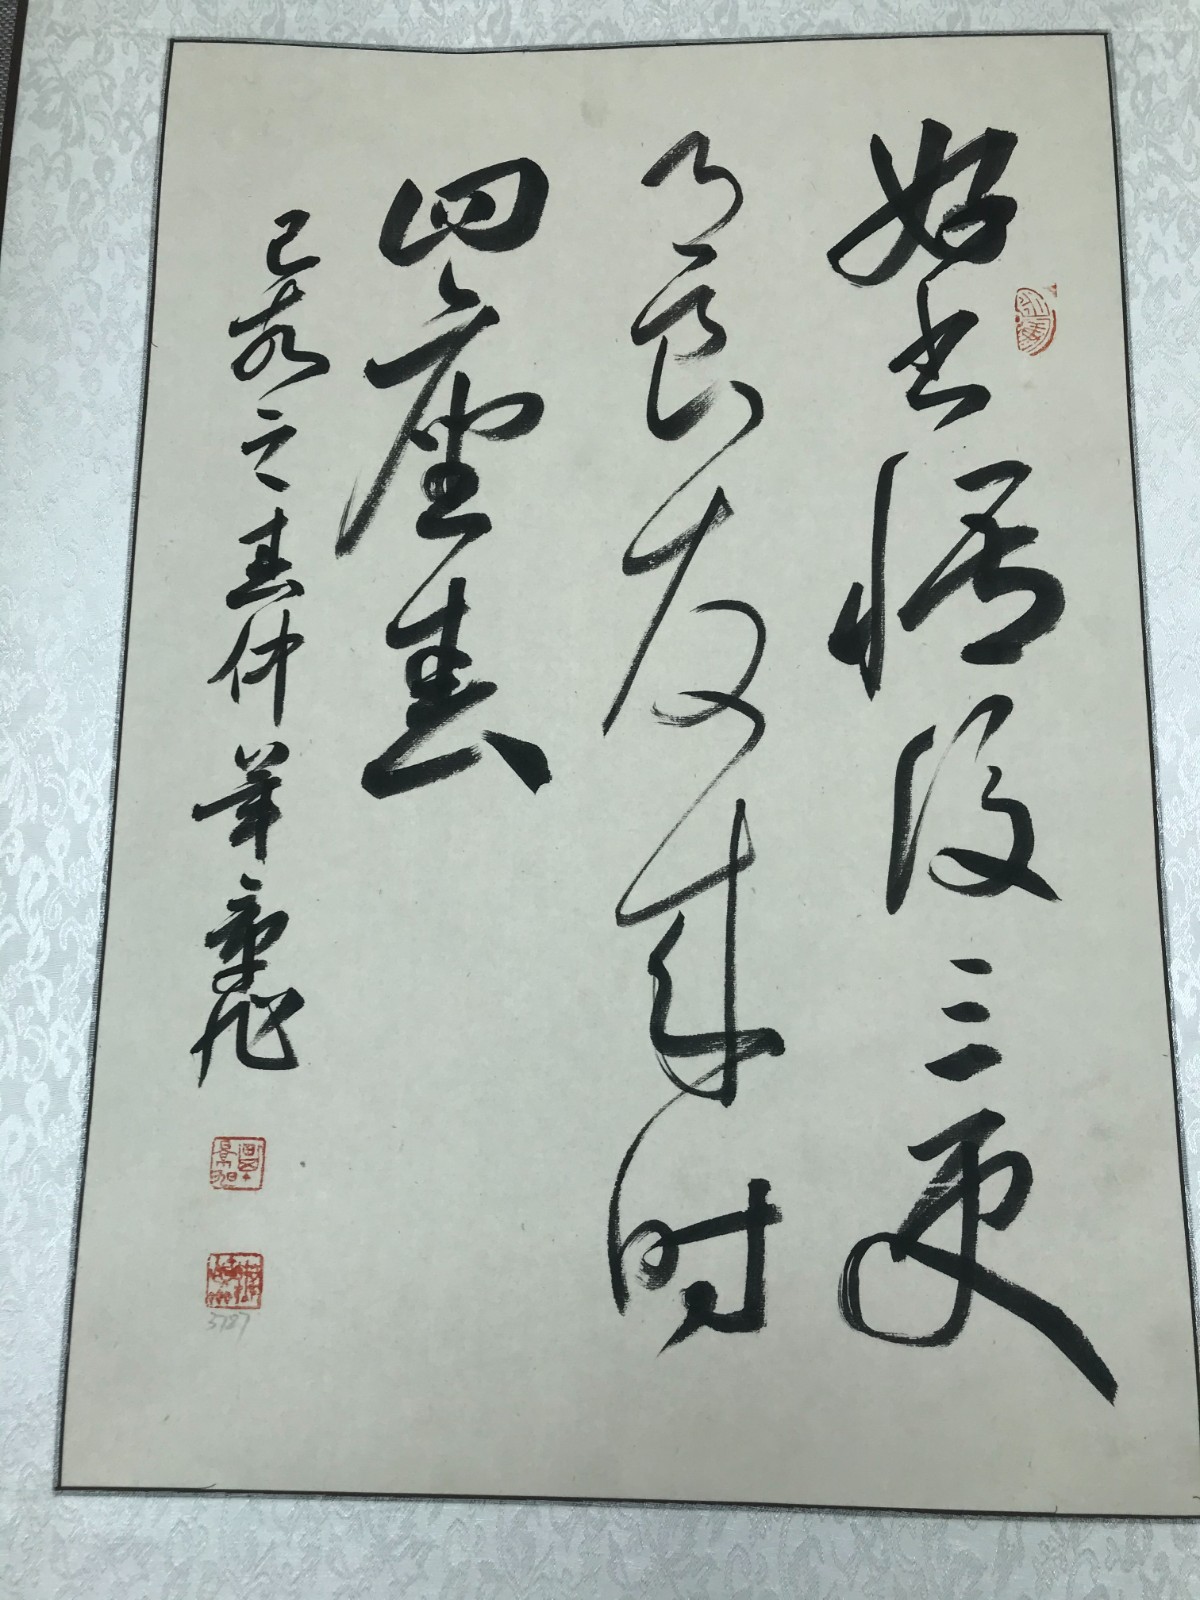 好书悟後三更
月良友来时
四座春
己亥之春仲
3787